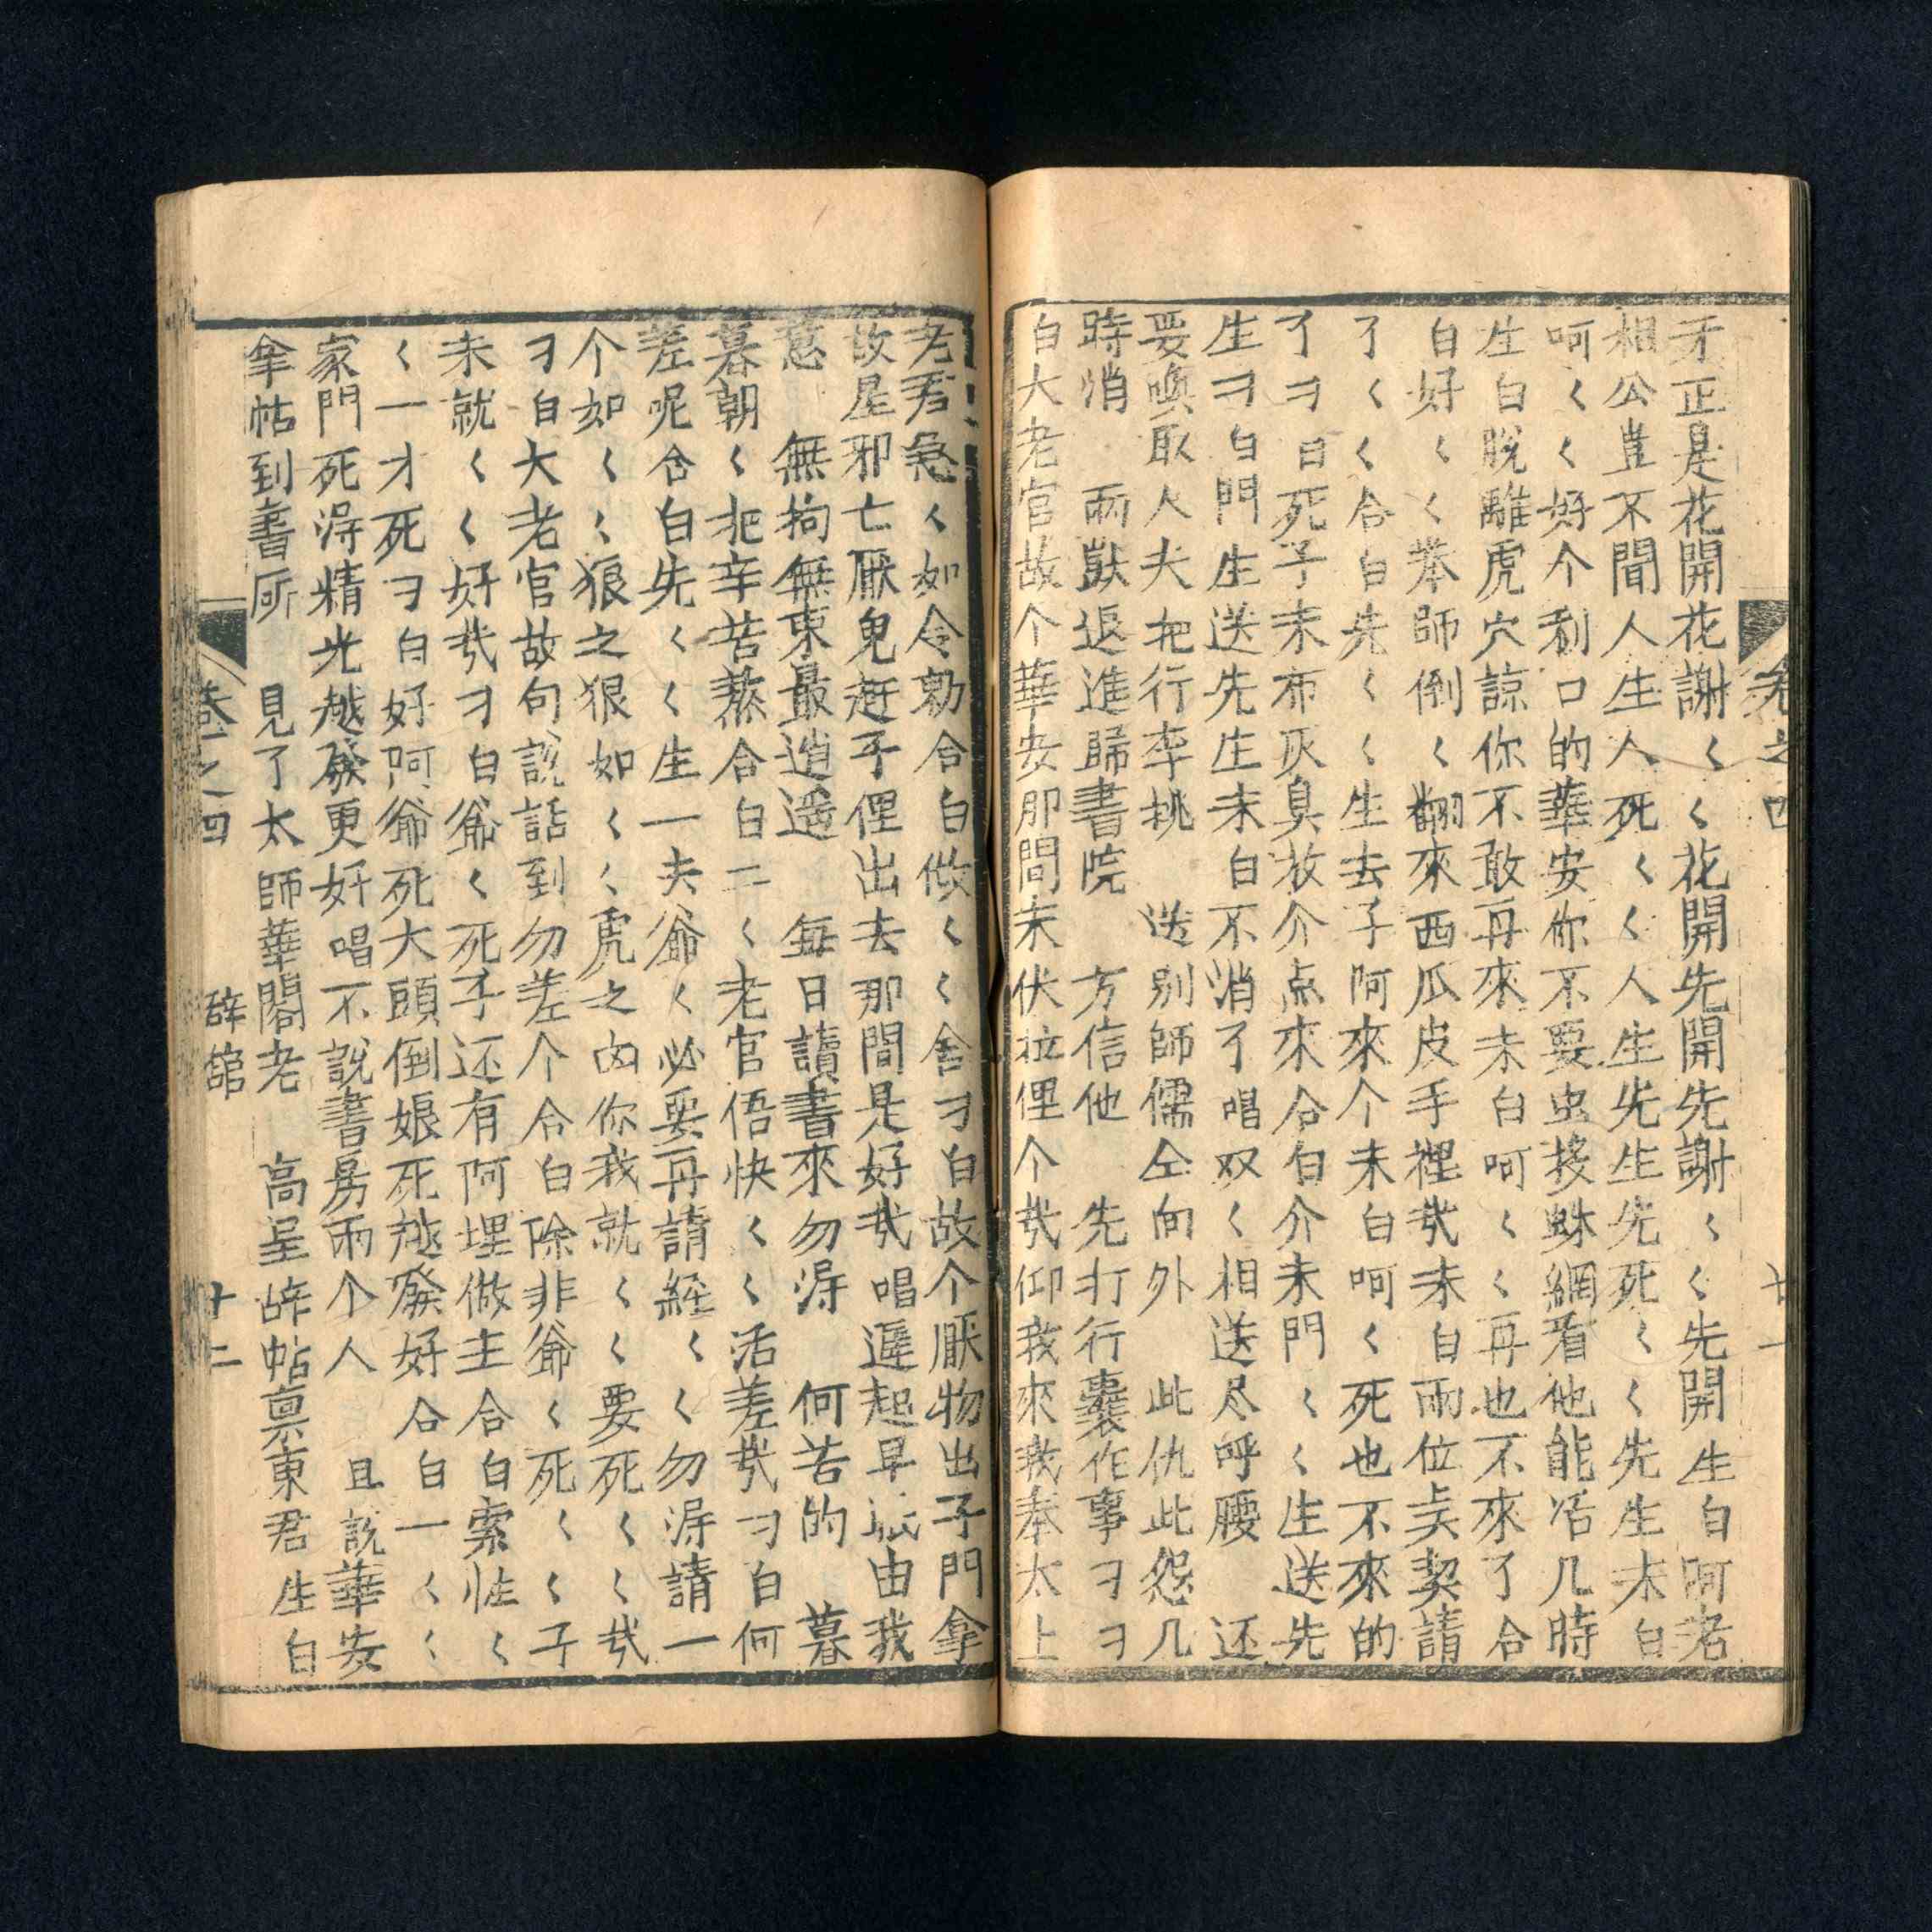 卷之四
十一
正是花開花謝〱〱花開先開先謝〱〱先開生白阿老
相公豈不聞人生人死〱〱人生先生先死〱〱先生末白
呵〱〱好个利口的華安你不要虫接蛛網看他能活几時
生白脫離虎穴諒你不敢再來末白呵〱〱再也不來了合
白好〱〱苯師倒〱翻來西瓜皮手裡哉末白兩位吴契請
了〱〱合白先〱〱生去子阿來个末白呵〱死也不來的
了刁白死子末布灰臭放介点來合白介末門〱〱生送先
生刁白門生送先生末白不消了唱双〱相送尽呼腰 还
要喚取人夫把行李挑 送別師儒仝向外 此仇此怨几
時消 兩獃退進歸書院 方信他 先打行囊作事刁刁
白大老官故个華安那間末伏拉俚个哉仰我來我奉太上
老君急〱如令勅合白做〱〱舍刁白故个厭物出子門拿
故星邪亡厭鬼赶乎俚出去那間是好哉唱遲起早眠由我
意 無拘無束最逍遥 每日讀書來勿淂 何苦的 暮
暮朝〱把辛苦熬合白二〱老官俉快〱〱活差哉刁白何
差呢合白先〱〱生一夫爺〱必要再請經〱〱勿淂請一
个如〱〱狼之狠如〱〱虎之凶你我就〱〱要死〱〱哉
刁白大老官故句說話到勿差个合白除非爺〱死〱〱子
未就〱〱好哉刁白爺〱死子还有阿埋做主合白索性〱
〱一才死刁白好阿爺死大頭倒娘死越發好合白一〱〱
家門死淂精光越發更好唱不說書房兩个人 且說華安
拿帖到書所 見了太師華閣老 高呈辞帖禀東君生白
卷之四
辞舘
十二